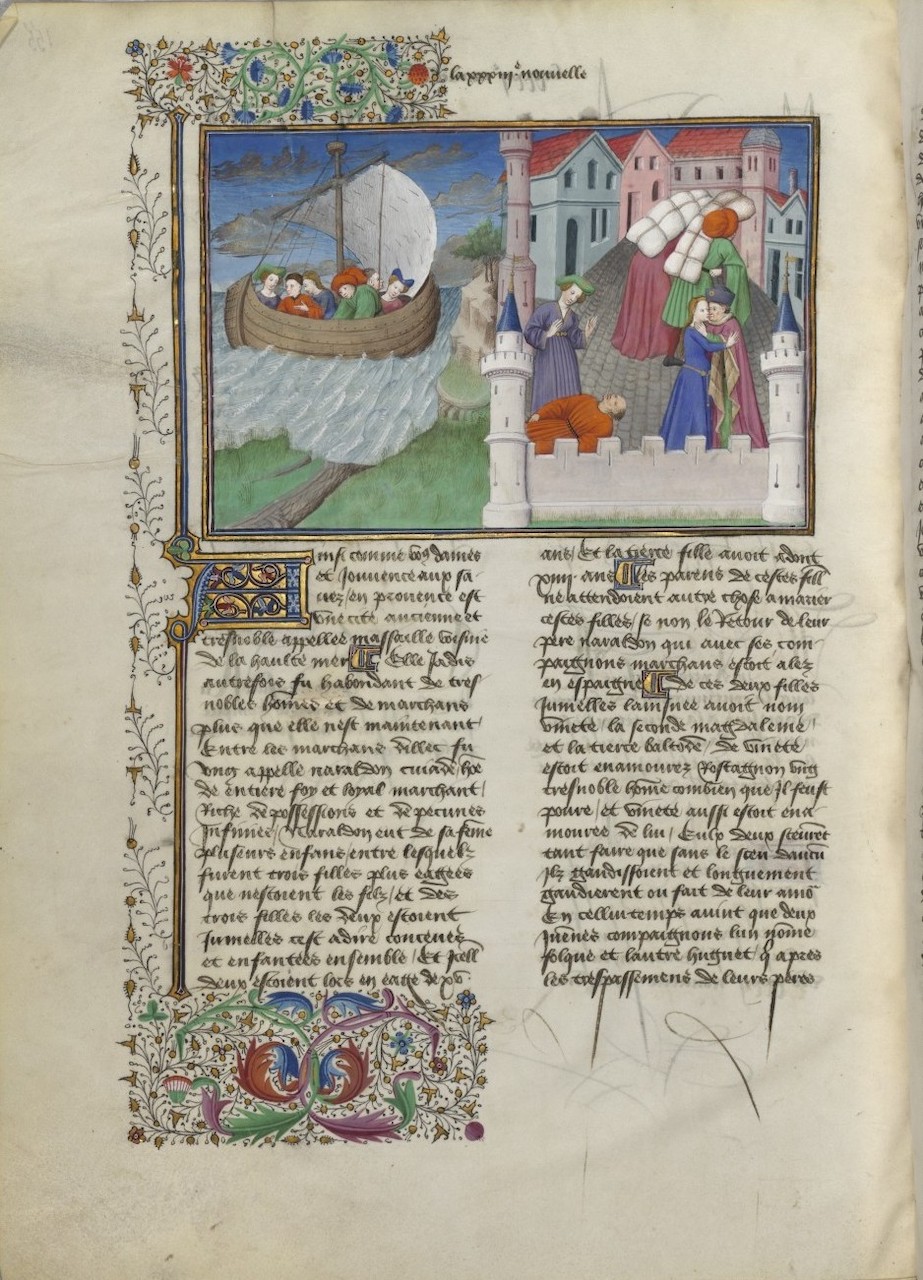 la xxxiii.e nouuelle
Ainsi comme vous dames
et Jouuenceaux sa-
uez / en prouence est
vne cite ancienne et
tresnoble appellee massaille voisine
de la haulte mer Celle Jadis
autresfois fu habondant de tres
nobles hõmes et de marchans
plus que elle nest maintenant /
Entre les marchans dillec fu
vng appelle naraldon cuiade / hõe
de entiere foy et loyal marchant /
Riche de possessions et de pecunes
Infinies / Naraldon eut de sa fem̃e
plusieurs enfans / entre lesquelz
furent trois filles plus eagees
que nestoient les filz / et des
trois filles les deux estoient
Jumelles cest adire conceues
et enfantees ensemble / Et Icell
deux estoient lors en eage de xv
ans / Et la tierce fille auoit adont
xiiii. ans Les parens de cestes fill
ne attendoient autre chose a marier
cestes filles / se non le Retour de leur
pere naraldon qui auec ses com-
paignons marchans estoit alez
en espaigne De ces deux filles
Jumelles lainsnee auoit nom
vinete / la seconde magdaleine /
et la tierce baltode / de vinete
estoit enamourez Rostagnon vng
tresnoble hõme combien que Jl feust
poure / et vinete aussi estoit ena-
mouree de lui / Eulx deux sceurẽt
tant faire que sans le sceu daucũ
Jlz gaudissoient et longuement
gaudierent ou fait de leur amõ
En cellui temps auint que deux
Juenes compaignons lun nõme
folque et lautre huguet / q̃ apres
les trespassemens de leurs peres